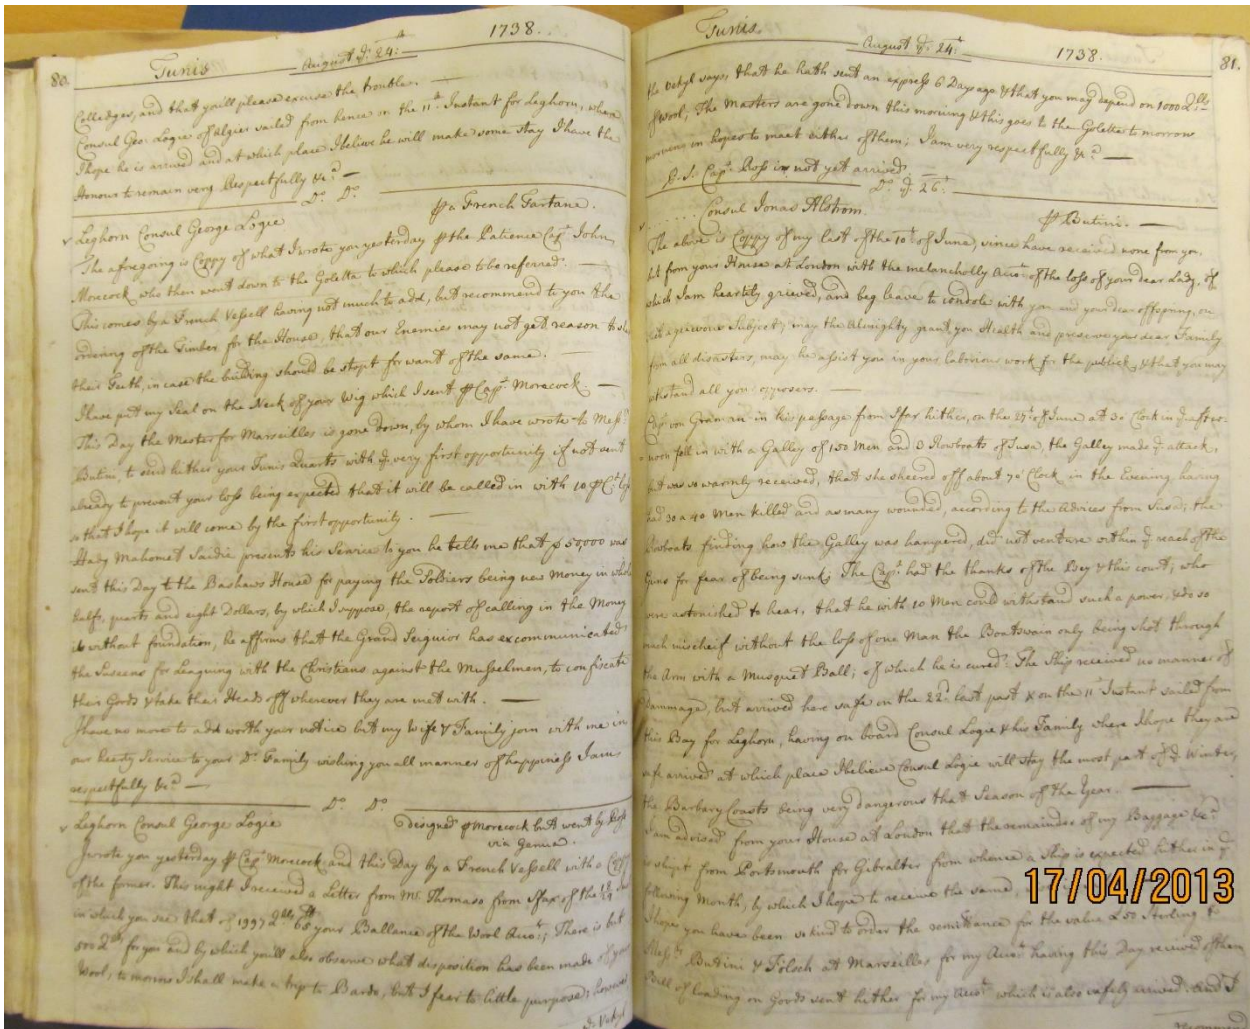 80. Tunis August ye. 24th: 1738.
Colledges, and that you'll please excuse the trouble. —
Consul Geo: Logie of Algier sailed from hence on the 11th. Instant for Leghorn, where
I hope he is arrived and at which place I believe he will make some stay I have the
Honour to remain very Respectfully &ca. —
Do. Do.
Leghorn Consul George Logie
⅌ a French Tartane.
The aforegoing is Coppy of what I wrote you yesterday ⅌ the Patience Capt. John
Morecock who then went down to the Goletta to which please to be referred. —
This comes by a French Vessell having not much to add, but recommend to you the
ordering of the Timber for the House, that our Enemies may not get reason to
their Teeth, in case the building should be stopt for want of the same. —
I have put my Seal on the Neck of your Wig which I sent ⅌ Capt. Morecock. —
This Day the Master for Marseilles is gone down, by whom I have wrote to Messrs.
Butini, to send hither your Tunis Quarts with ye. very first opportunity if not sent
already to prevent your loss being expected that it will be called in with 10 ⅌ Ct.
so that I hope it will come by the first opportunity. —
Hady Mahomet Saidie presents his Service to you he tells me that $ 50,000 was
sent this Day to the Bashaws House for paying the Soldiers being new Money in whole
halfs, quarts and eight Dollars, by which I suppose, the report of calling in the Money
is without foundation, he affirms that the Grand Seguior has excommunicated
the Suseens for Leaguing with the Christians against the Musselmen, to confiscate
their Goods & take their Heads off wherever they are met with. —
I have no more to add worth your notice but my Wife & Family join with me in
our hearty Service to your Dr. Family wishing you all manner of happiness I am
respectfully &ca. —
Do. Do.
Leghorn Consul George Logie
designed ⅌ Morecock but went by Ross
via Genua.
I wrote you yesterday ⅌ Capt. Morecock and this Day by a French Vessell with a Coppy
of the former. This night I received a Letter from Mr. Thomaso from Sfax of the
in which you see that 1997 65 your Ballance of the Wool Accot.; There is but
500 for you and by which you'll also observe what disposition has been made of your
Wool, to morrow I shall make a trip to Bardo, but I fear to little purpose; however
ye. Vekyl
Tunis. August ye. 24th: 1738. 81.
the Vekyl says, that he hath sent an express 6 Days ago & that you may depend on 1000
of Wool; The Masters are gone down this morning & this goes to the Goletta to morrow
morning in hopes to meet either of them; I am very respectfully &ca. —
P.S. Capt. Ross is not yet arrived.
Do. ye. 26th.
Consul Jonas Alstrom.
⅌ Butini. —
The above is Coppy of my last of the 10th of June, since have received none from you,
but from your House at London with the melancholly Accot. of the loss of your dear Lady, of
which I am heartily grieved, and beg leave to condole with you and your dear offspring, on
such a grievous Subject; may the Almighty grant you Health and preserve your dear Family
from all disasters, may he assist you in your laborious work for the publick, & that you may
withstand all your opposers. —
Capt. von Graman in his passage from Sfax hither, on the of June at 3 o Clock in ye. after-
noon fell in with a Galley of 150 Men and 3 Rowboats of Susa, the Galley made ye. attack,
but was so warmly received, that she sheered off about 7 o' Clock in the Evening, having
had 30 a 40 Men killed and as many wounded, according to the advices from Susa; the
Rowboats finding how the Galley was hampered, did not venture within ye. reach of the
Guns for fear of being sunk; The Capt. had the thanks of the Bey & this court; who
were astonished to hear, that he with 10 Men could withstand such a power, & do so
much mischeif without the loss of one Man the Boatswain only being shot through
the Arm with a Musquet Ball; of which he is cured. The Ship received no manner of
Dammage, but arrived here safe on the 22d. last past & on the 11th Instant sailed from
this Bay for Leghorn, having on board Consul Logie & his Family where I hope they are
safe arrived at which place I believe Consul Logie will stay the most part of ye. Winter,
the Barbary Coasts being very dangerous that Season of the Year. —
I am advised from your House at London that the remainder of my Baggage &ca.
is shipt from Portsmouth for Gibralter from whence a Ship is expected hither in ye.
following Month, by which I hope to receive the same,
I hope you have been so kind to order the remittance for the value £50 Sterling to
Messrs. Butini & Fölsch at Marseilles for my Accot. having this Day received of them
Bill of loading on Goods sent hither for my Accot. which is also safely arrived. And I
recommend
17/04/2013